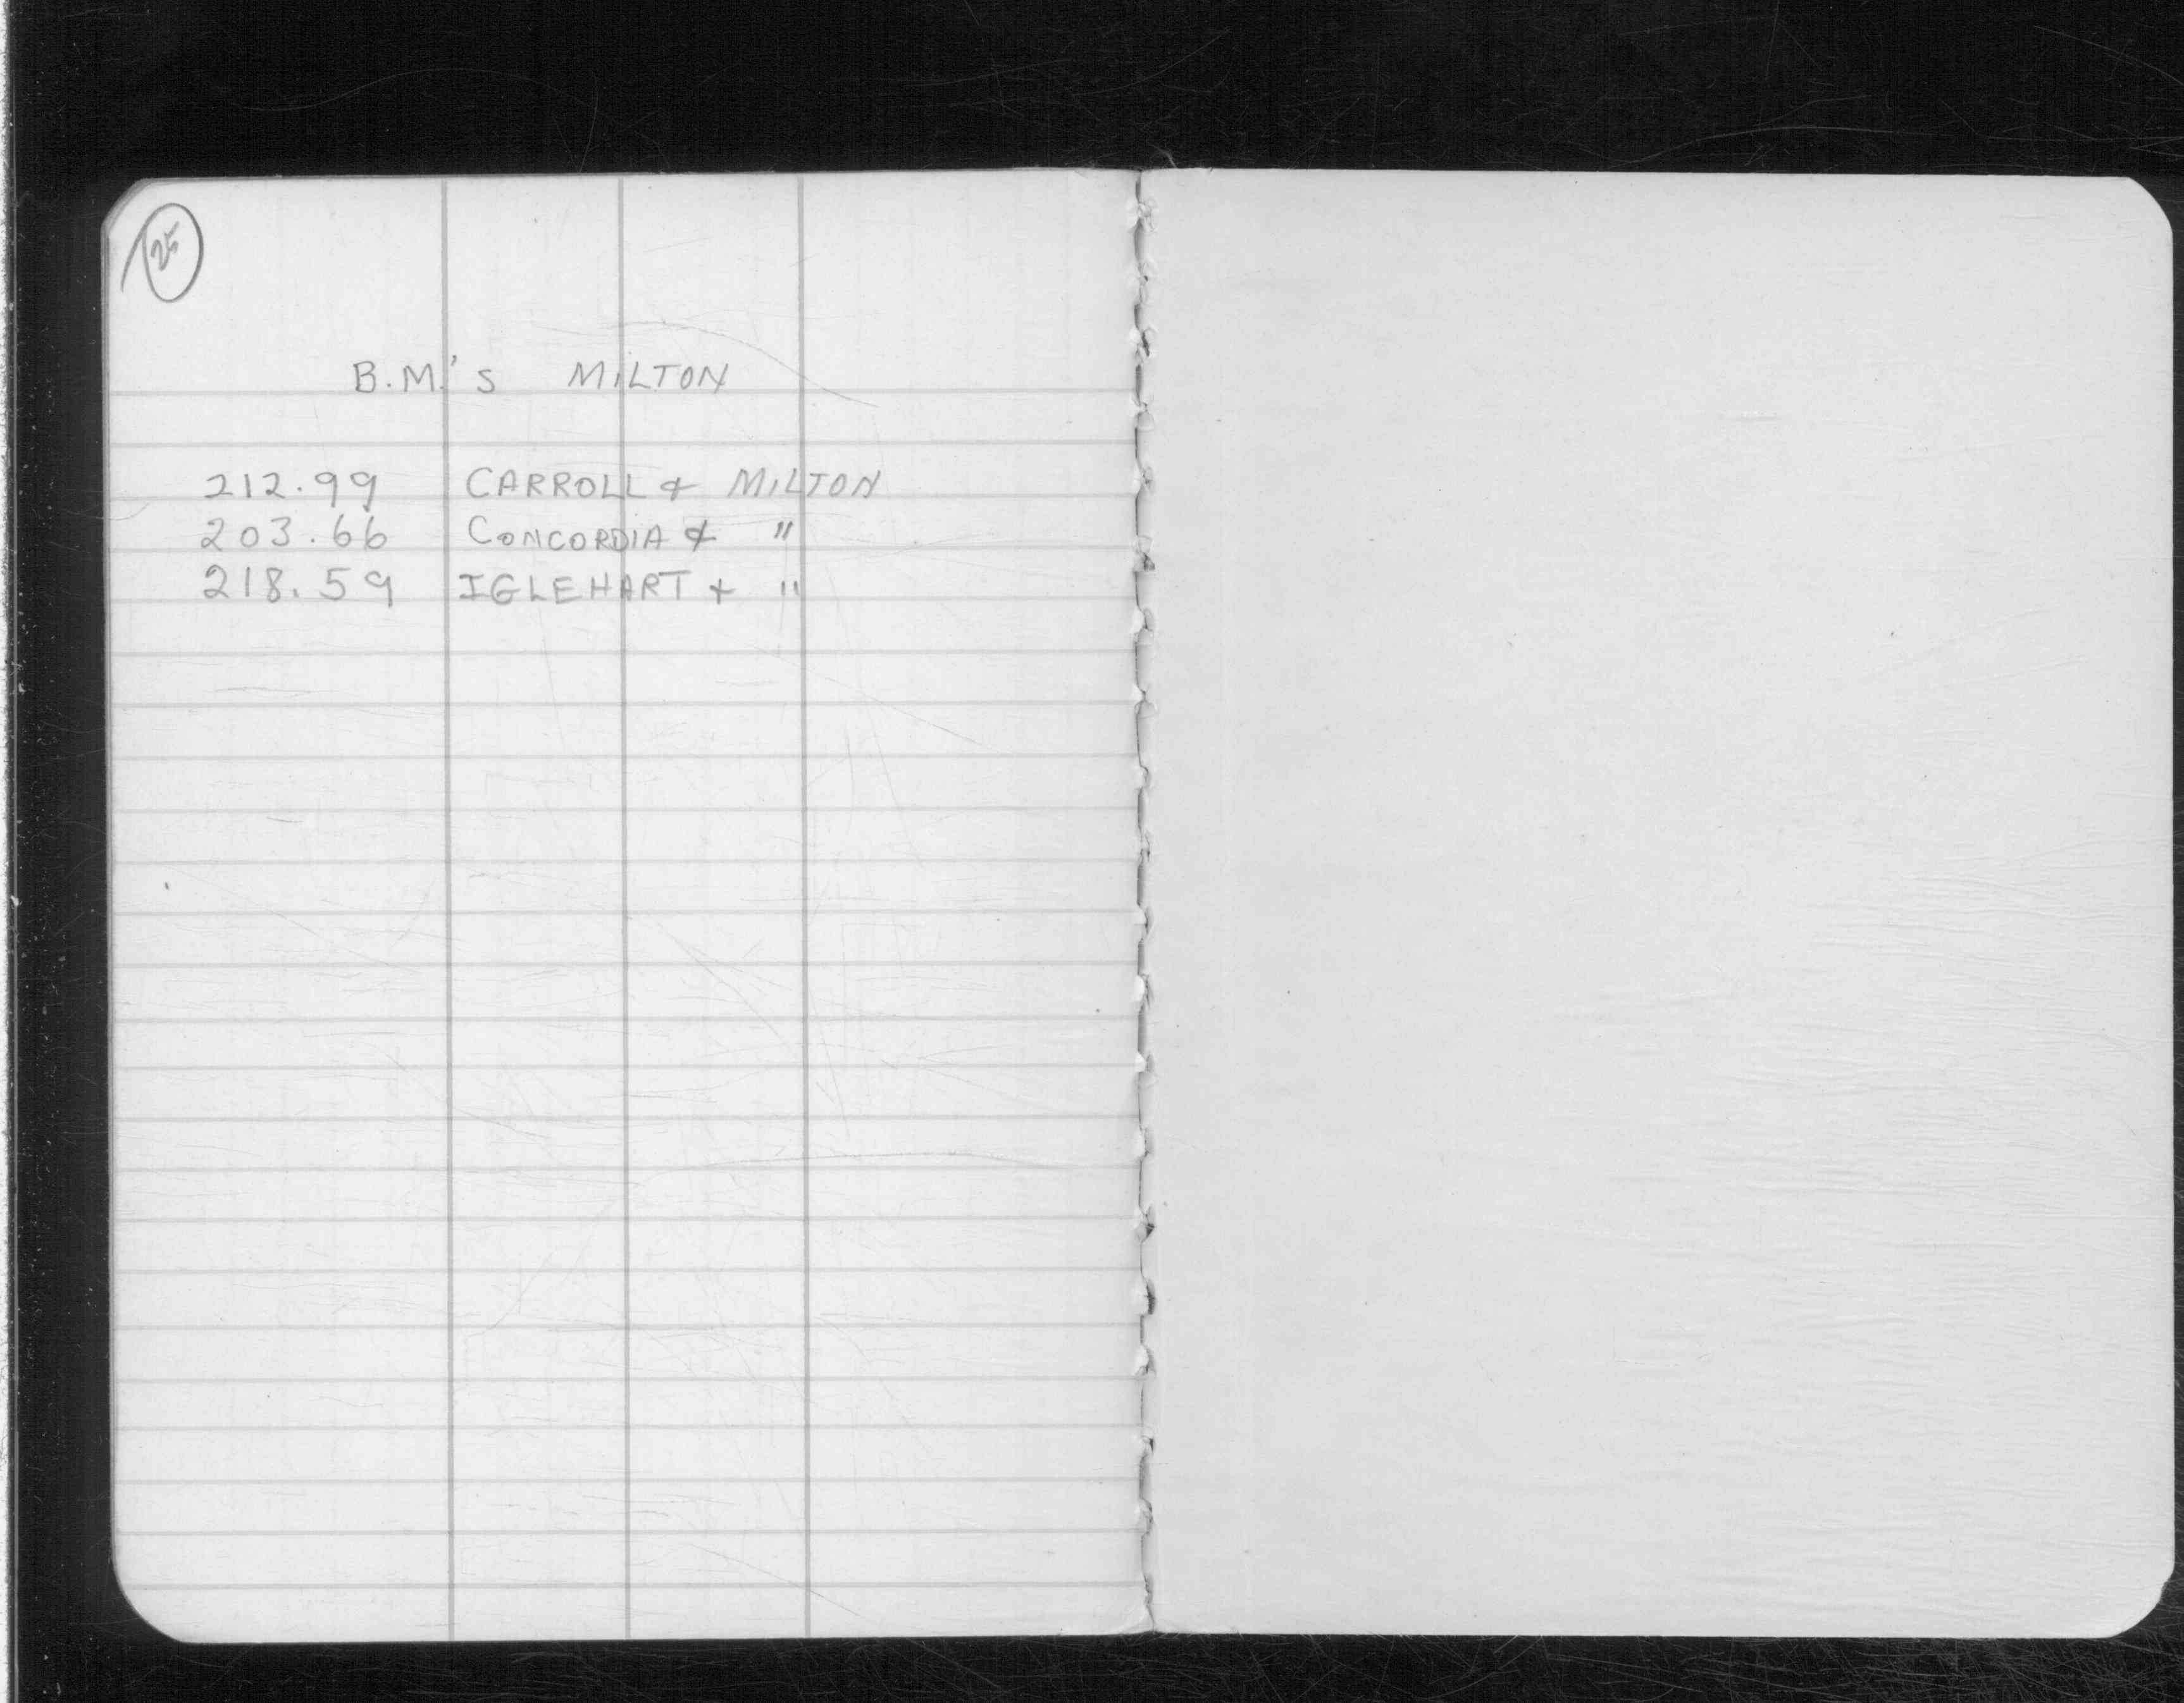 25
B.M.'s MILTON
212.99 CARROLL & MILTON
203.66 CONCORDIA & "
218.59 IGLEHART & "